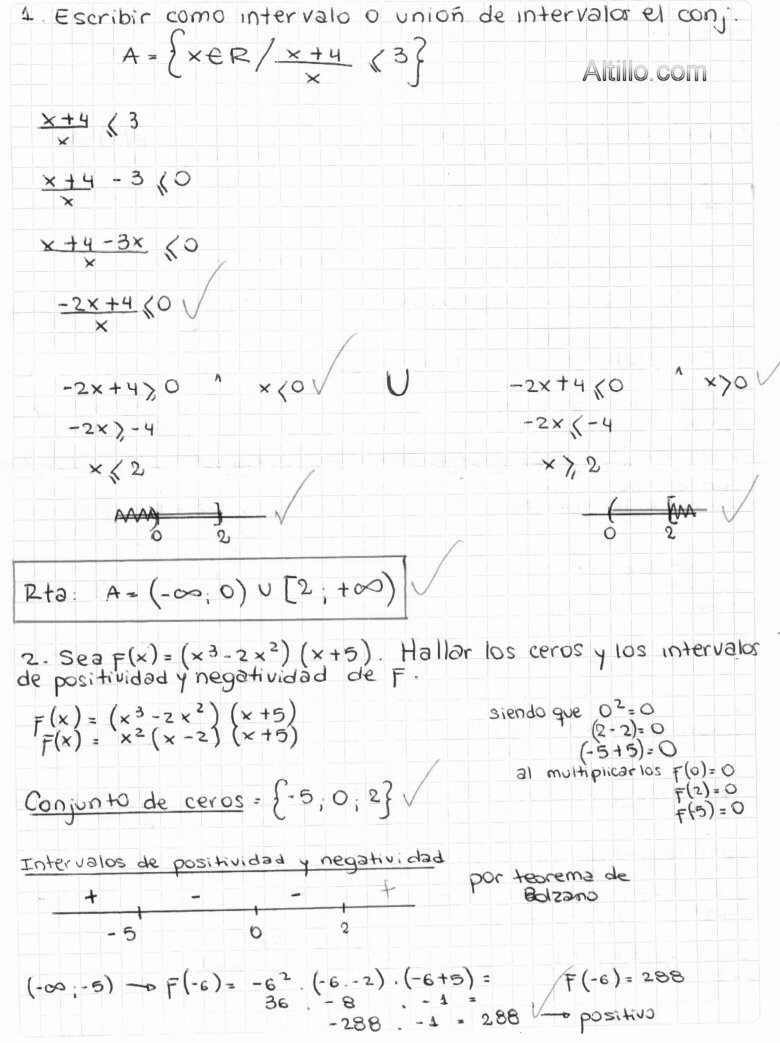 1. Escribir como intervalo o unión de intervalos el conj.
A = {x∈R / x+4/x ≤ 3}
Altillo.com
x+4/x ≤ 3
x+4/x - 3 ≤ 0
x+4-3x/x ≤ 0
-2x+4/x ≤ 0 ✓
-2x+4 ≥ 0 ^ x<0 ✓ U -2x+4 ≤ 0 ^ x>0 ✓
-2x ≥ -4 -2x ≤ -4
x ≤ 2 x ≥ 2
0 2 ✓ 0 2 ✓
Rta: A = (-∞; 0) ∪ [2; +∞) ✓
2. Sea F(x) = (x³-2x²) (x+5). Hallar los ceros y los intervalos
de positividad y negatividad de F.
F(x) = (x³-2x²) (x+5)
F(x) = x² (x-2) (x+5)
siendo que 0²=0
(2-2)=0
(-5+5)=0
al multiplicarlos F(0)=0
F(2)=0
F(-5)=0
Conjunto de ceros = {-5; 0; 2} ✓
Intervalos de positividad y negatividad
+ - - +
-5 0 2
por teorema de
Bolzano
(-∞; -5) → F(-6) = -6² . (-6-2) . (-6+5) = F(-6) = 288
36 . -8 . -1 =
-288 . -1 = 288 ✓ → positivo